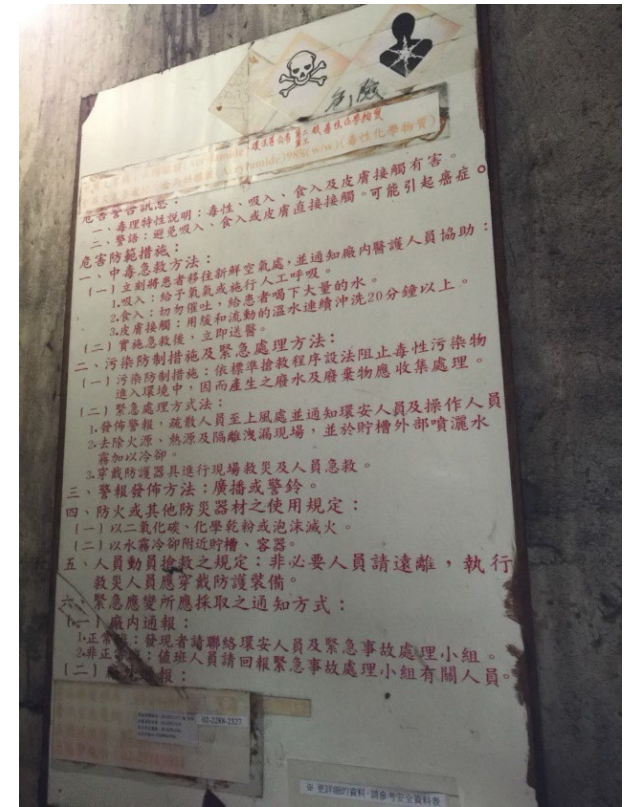 危險
危害警告訊息：
一、毒理特性說明：毒性、吸入、食入及皮膚接觸有害。
二、警語：避免吸入、食入或皮膚直接接觸。可能引起癌症。
危害防範措施：
一、中毒急救方法：
(一)立刻將患者移往新鮮空氣處，並通知廠內醫護人員協助：
1.吸入：給予氧氣或施行人工呼吸。
2.食入：切勿催吐，給患者喝下大量的水。
3.皮膚接觸：用緩和流動的溫水連續沖洗20分鐘以上。
(二)實施急救後，立即送醫。
二、污染防制措施及緊急處理方法：
(一)污染防制措施：依標準搶救程序設法阻止毒性污染物
進入環境中，因而產生之廢水及廢棄物應收集處理。
(二)緊急處理方式法：
1.發佈警報，疏散人員至上風處並通知環安人員及操作人員
2.去除火源、熱源及隔離洩漏現場，並於貯槽外部噴灑水
霧加以冷卻。
3.穿戴防護器具進行現場救災及人員急救。
三、警報發佈方法：廣播或警鈴。
四、防火或其他防災器材之使用規定：
(一)以二氧化碳、化學乾粉或泡沫滅火。
(二)以水霧冷卻附近貯槽、容器。
五、人員動員搶救之規定：非必要人員請遠離，執行
救災人員應穿戴防護裝備。
六、緊急應變所應採取之通知方式：
(一)廠內通報：
1.正常：發現者請聯絡環安人員及緊急事故處理小組。
2.非正：值班人員請回報緊急事故處理小組有關人員。
(二)報：
02-2288-2327
※ 更詳細的資料，請參考安全資料表